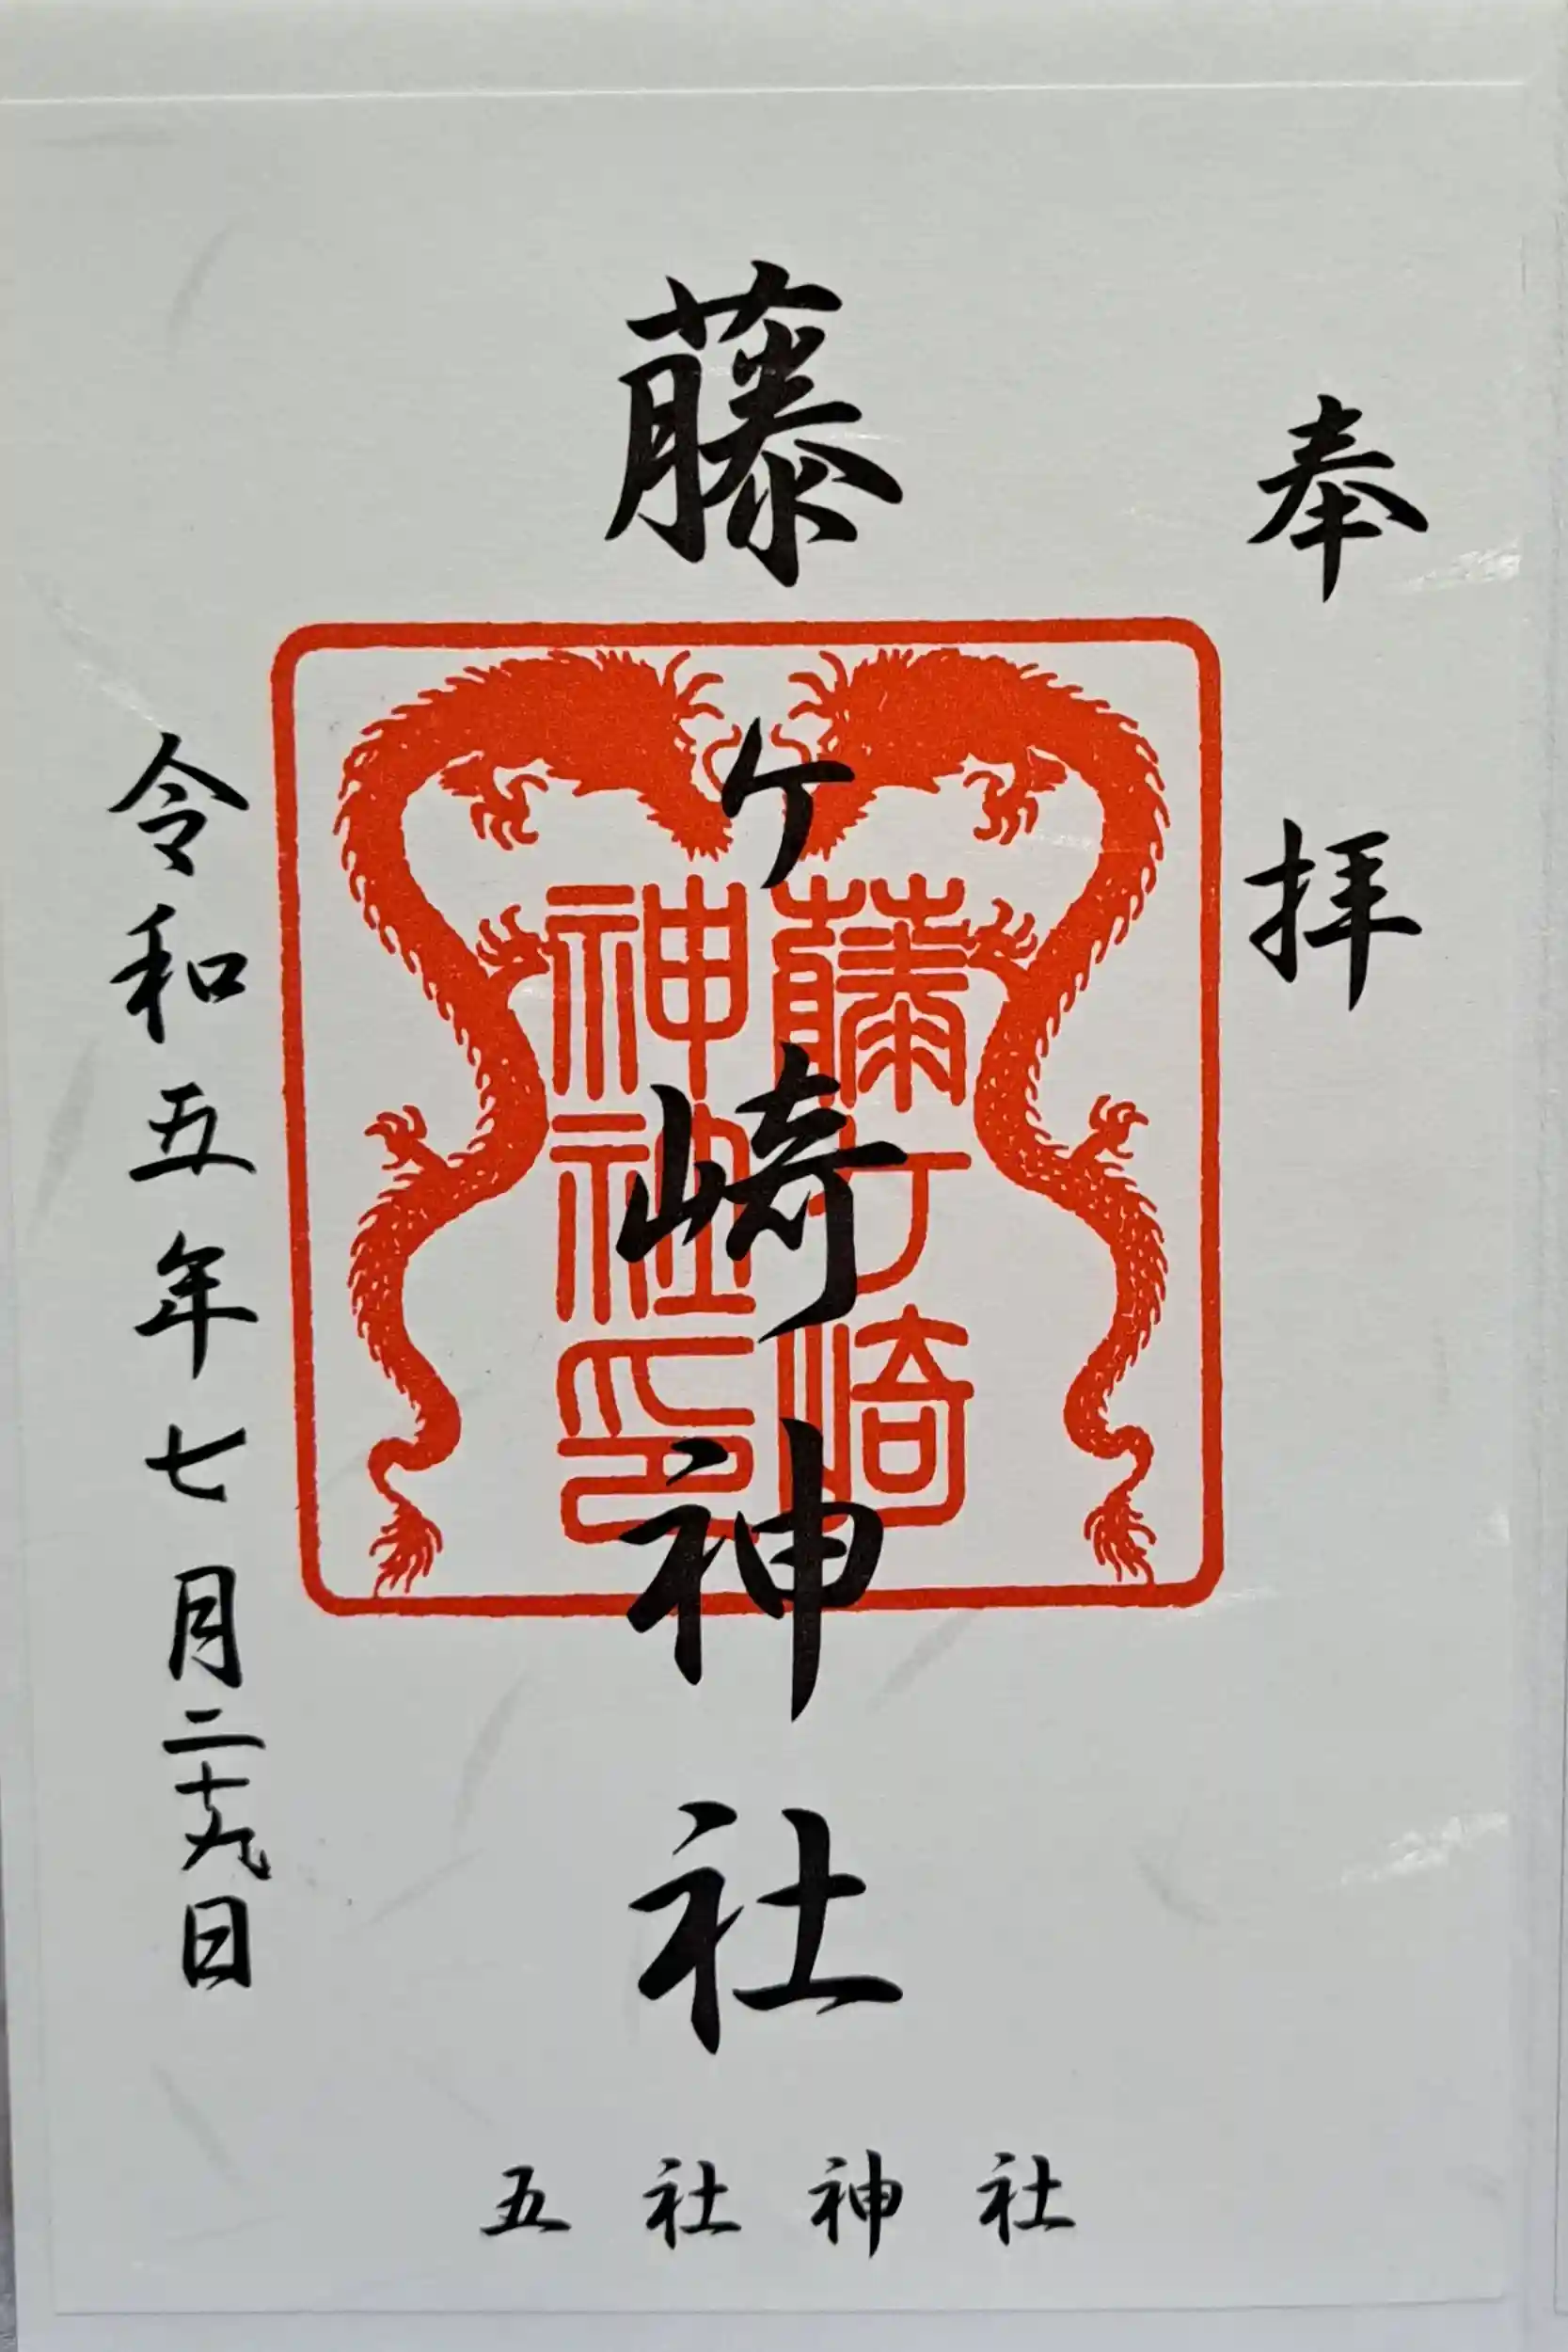 奉拝
藤ヶ崎神社
藤ヶ崎
神社印
令和五年七月二十九日
五社神社